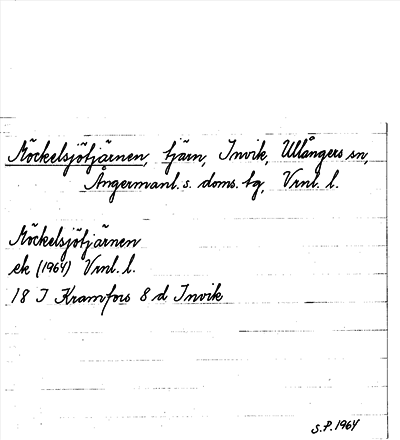 Möckelsjötjärnen, tjärn, Invik, Ullångers sn,
Ångermanl. s. doms. tg, Vrnl. l.
Möckelsjötjärnen
ek (1964) Vrnl. l.
18 I Kramfors 8 d Invik
S.P. 1964